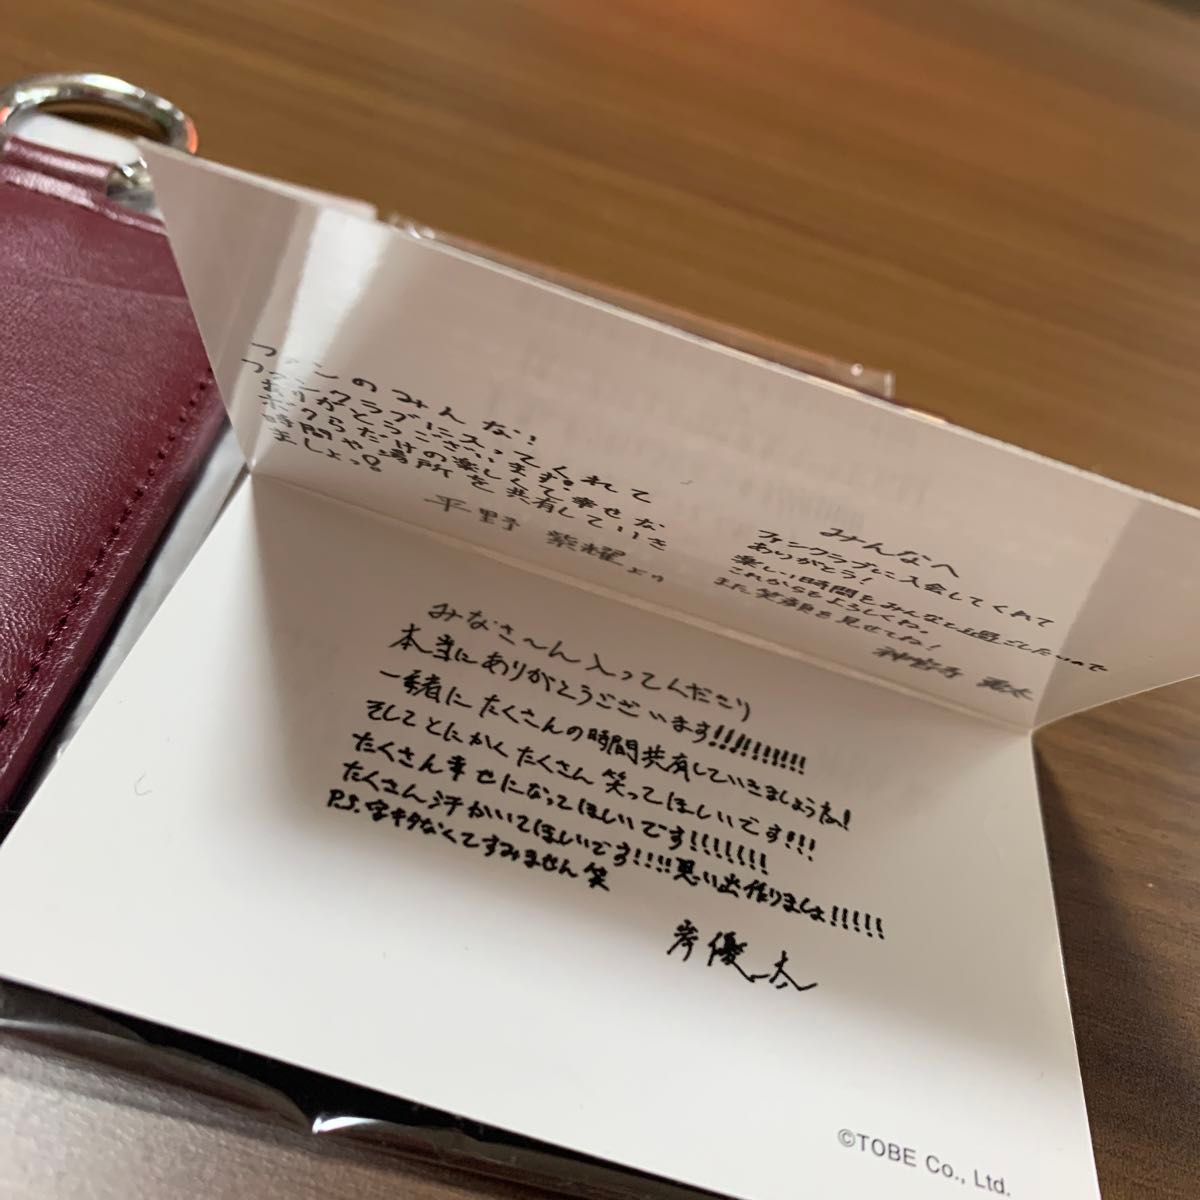 ファンのみんな!
ファンクラブに入ってくれて
ありがとうございます。
ボクらだけの楽しくて幸せな
時間や場所を共有していき
ましょっ
平野 紫耀より
みんなへ
ファンクラブに入会してくれて
ありがとう!
楽しい時間をみんなと過ごしたいので
これからもよろしくね。
また笑顔を見せてね!
神宮寺 勇太
みなさ〜ん入ってくださり
本当にありがとうございます!!!!!!!!!!
一緒にたくさんの時間共有していきましょうね!
そしてとにかくたくさん笑ってほしいです!!!
たくさん幸せになってほしいです!!!!!!!!
たくさん汗かいてほしいです!!!!思い出作りましょ!!!!!
P.S.字キタなくてすみません笑
岸優太
©TOBE Co., Ltd.